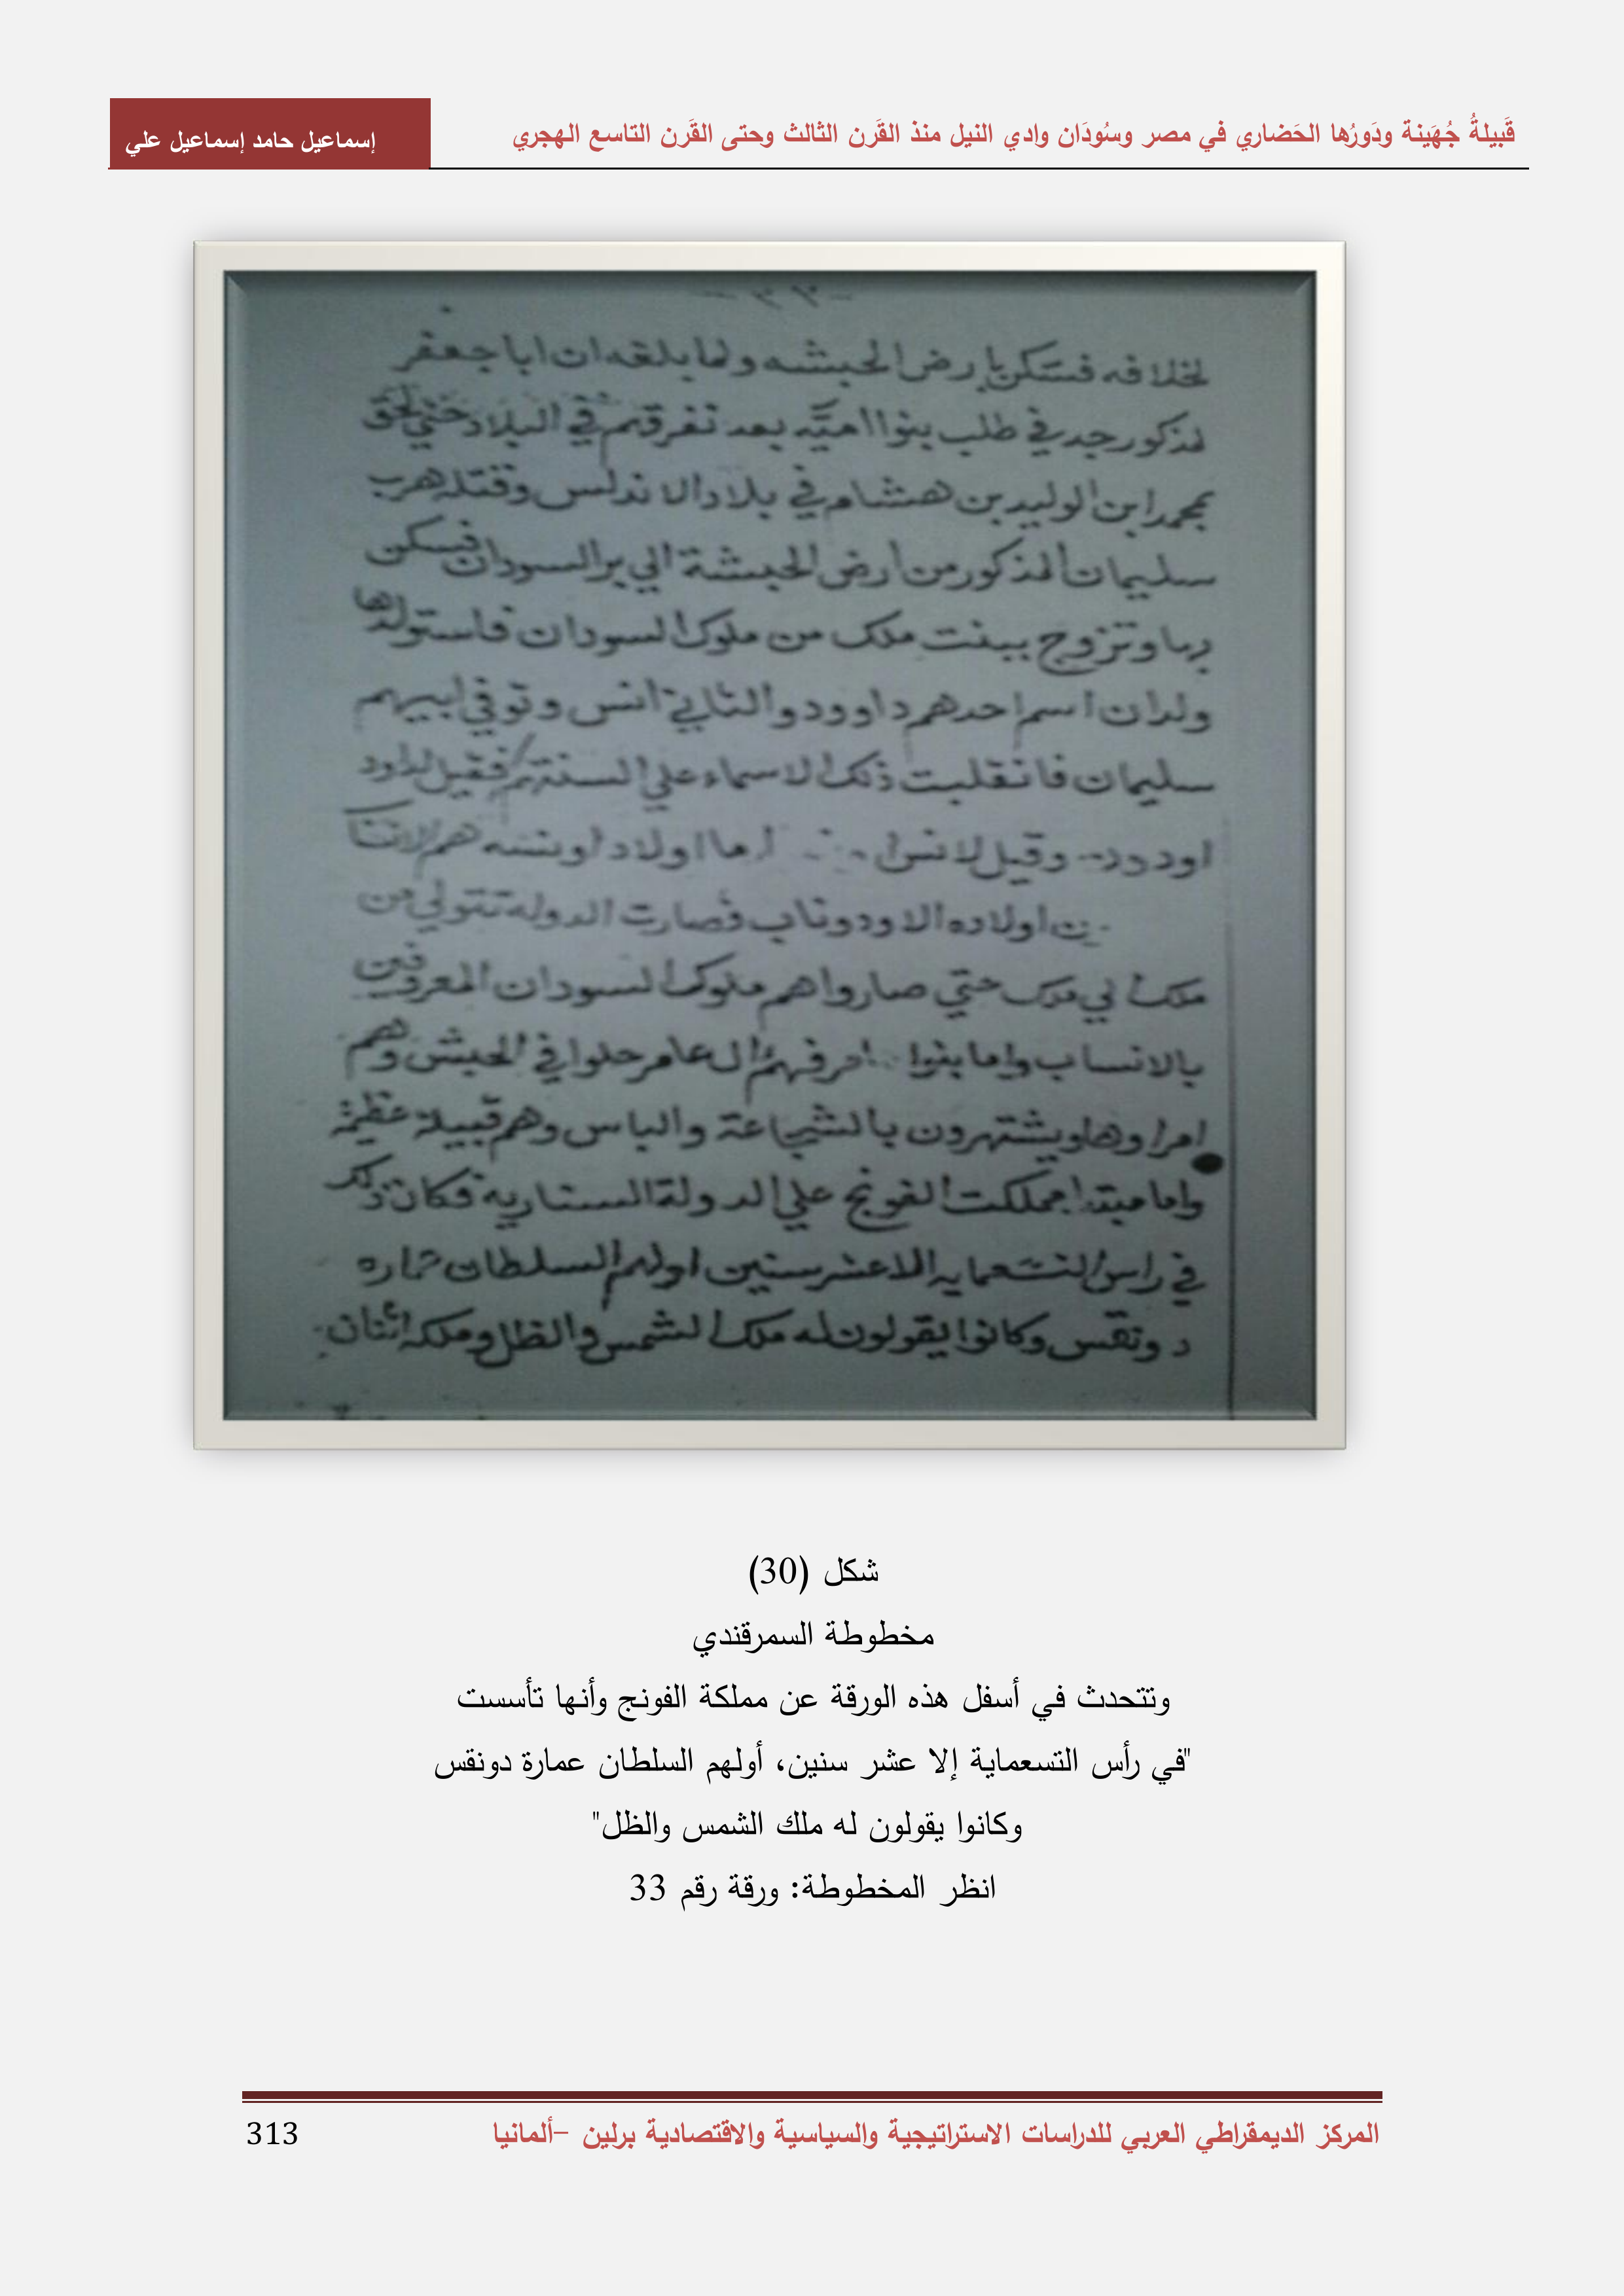 قَبيلةُ جُهَينة ودَورُها الحَضاري في مصر وسُودَان وادي النيل منذ القَرن الثالث وحتى القَرن التاسع الهجري
إسماعيل حامد إسماعيل علي
لخلافه فسكن بارض الحبشه ولما بلغه ان ابا جعفر
لمذكور جد في طلب بنوا اميّه بعد تفرقتهم في البلاد حتي لحق
بمحمد ابن الوليد بن هشام في بلاد الاندلس وقتله هرب
سليمان المذكور من ارض الحبشة الي بر السودان فسكن
بها وتزوج ببنت ملك من ملوك السودان فاستولدها
ولدان اسم احدهم داوود والثاني انس وتوفي ابيهم
سليمان فانقلبت ذلك الاسماء علي السنتهم فقيل لداود
اودود وقيل لانس اولاد اونسه هم
اولاده الاودوناب فصارت الدوله تتولي من
ملك الي ملك حتي صاروا هم ملوك السودان المعروفين
بالانساب واما بنوا فهم ال عامر حلوا في الحبش وهم
امراوها ويشتهرون بالشجاعة والباس وهم قبيلة عظيمة
واما مملكت الفونج علي الدولة السنارية فكان ذلك
في راس التسعمايه الا عشر سنين اولهم السلطان عماره
دونقس وكانوا يقولون له ملك الشمس والظل وملكه اثنان
شكل (30)
مخطوطة السمرقندي
وتتحدث في أسفل هذه الورقة عن مملكة الفونج وأنها تأسست
"في رأس التسعماية إلا عشر سنين، أولهم السلطان عمارة دونقس
وكانوا يقولون له ملك الشمس والظل"
انظر المخطوطة: ورقة رقم 33
المركز الديمقراطي العربي للدراسات الاستراتيجية والسياسية والاقتصادية برلين –ألمانيا
313